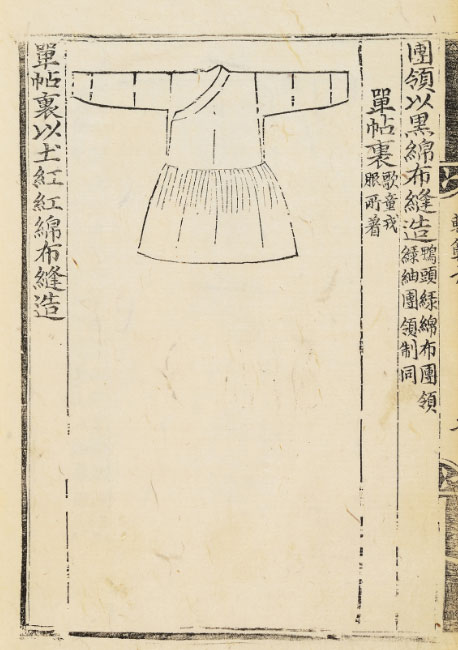 團領以黑綿布縫造
鴨頭綠綿布團領
綠紬團領制同
單帖裏
歌童戎
服所着
單帖裏以土紅紅綿布縫造